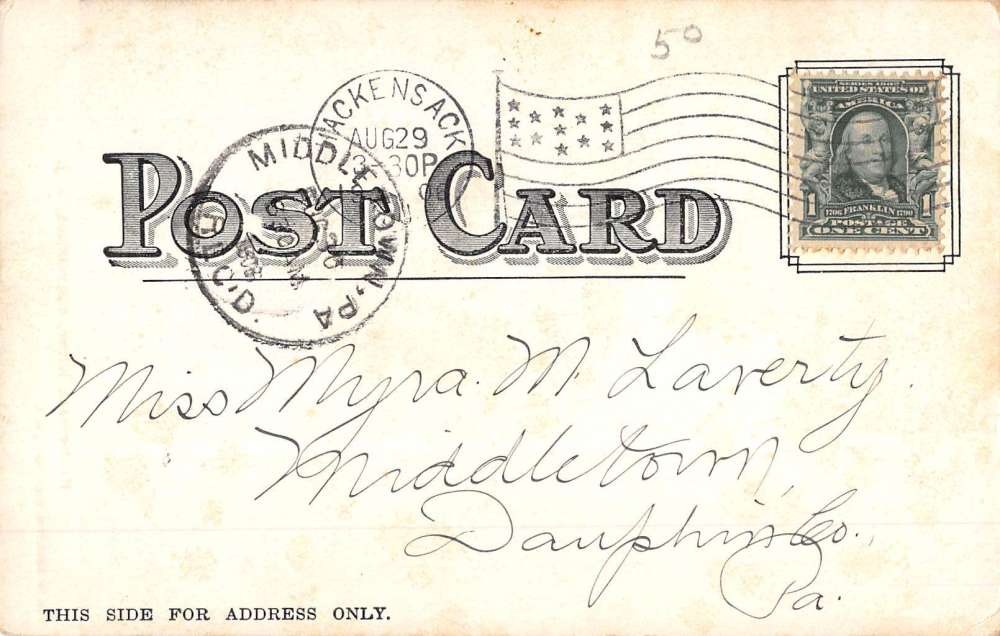 50
HACKENSACK
AUG29
30P
MIDDLETOWN, PA
REC'D.
POST CARD
SERIES 1902
UNITED STATES OF
AMERICA
1 1706 FRANKLIN 1790 1
POSTAGE
ONE CENT
Miss Myra. M. Laverty.
Middletown,
Dauphin Co.,
Pa.
THIS SIDE FOR ADDRESS ONLY.